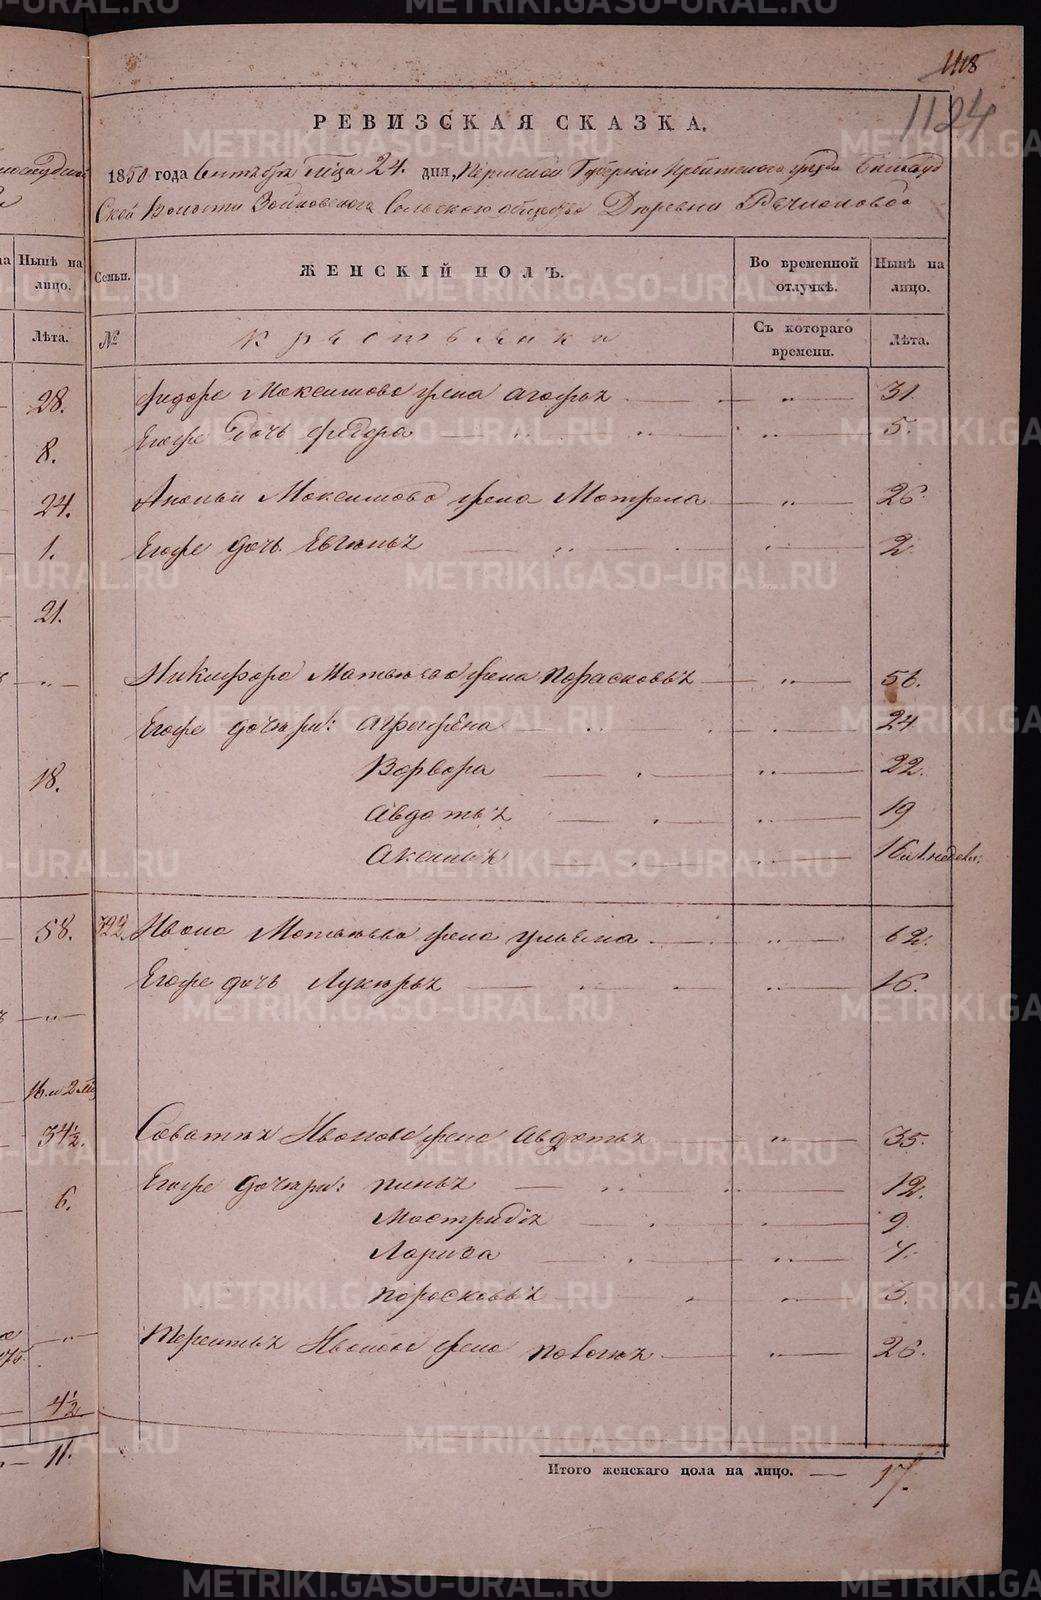 1118
1124
РЕВИЗСКАЯ СКАЗКА.
1850 года Октября м̃ца 24. дня, Пермской Губернии Ирбитского уезда
Ской Волости Зайковского Сельского общества Деревни Речкаловой
Ныне на лицо.
Семьи.
ЖЕНСКІЙ ПОЛЪ.
Во временной отлучкѣ.
Нынѣ на лицо.
Лѣта.
№
Крестьянки
Съ котораго времени.
Лѣта.
28. Федора Максимова жена Агафья — „ — 31.
8. Егоже дочь Федора — „ — 5.
24. Ананьи Максимова жена Матрена — „ — 26.
1. Егоже дочь Евгенья — „ — 2.
21.
— „ — Никифора Матвеева жена Парасковья — „ — 56.
Егоже дочери: Агрофена — „ — 24
18. Варвара — „ — 22.
Авдотья — „ — 19
Аксинья — „ — 16 недели:
58. 322. Ивана Матвеева жена Ульяна — „ — 62.
Егоже дочь Лукерья — „ — 16.
— „ —
16. и 2 м
34½. Саватея Иванова жена Авдотья — „ — 35.
6. Егоже дочери: Пинья — „ — 12.
Мастридія — „ — 9.
Лариса — „ — 7.
Поросковья — „ — 3.
— „ — Терентья Иванова жена Павлея — „ — 26.
4½.
11.
Итого женскаго пола на лицо. — 17.
METRIKI.GASO-URAL.RU